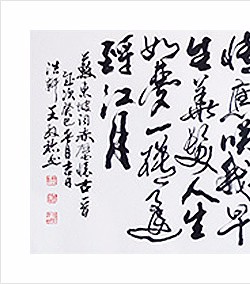 情應笑我早
生華髮人生
如夢一樽還
酹江月
蘇東坡詞赤壁懷古一首
歲次癸巳
浩軒王